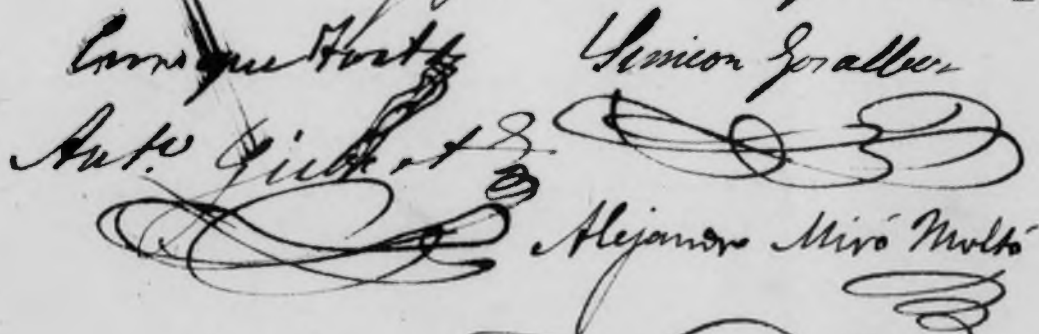 Enrique
Simeon Gosalbez
Ant.º Gisbert
Alejandro Miró Moltó